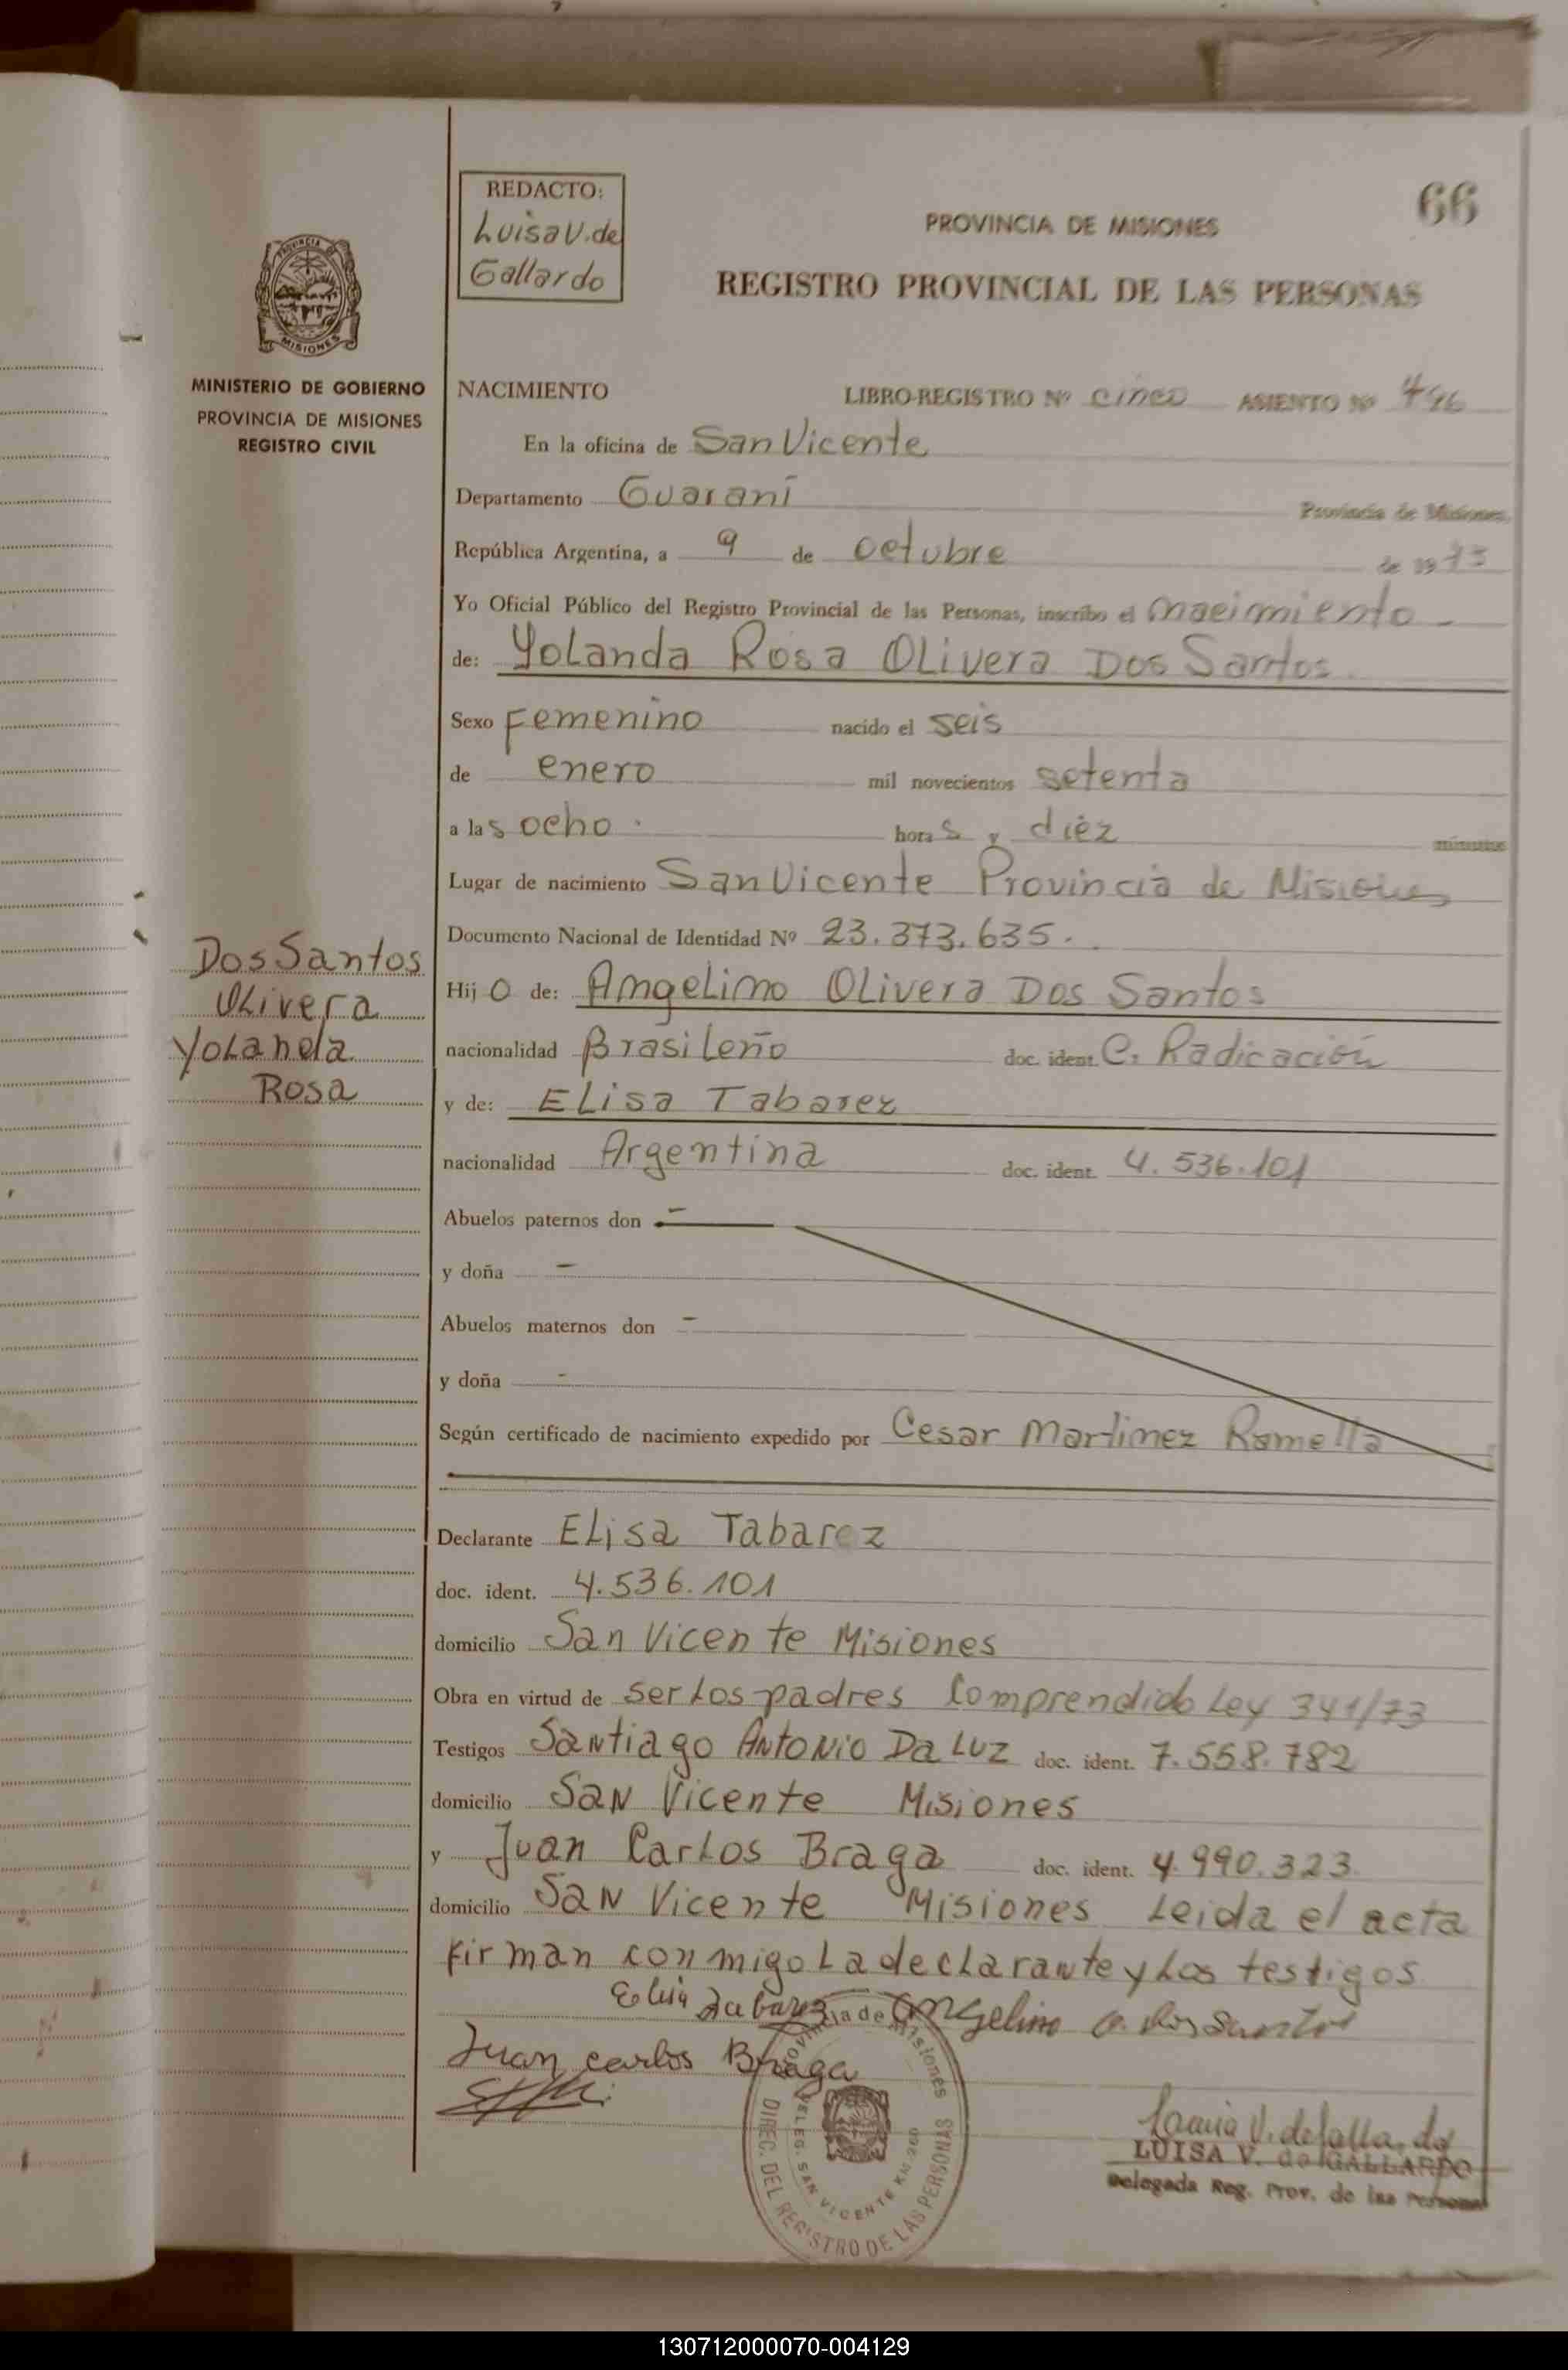 66
REDACTO:
Luisa V. de
Gallardo
PROVINCIA DE MISIONES
REGISTRO PROVINCIAL DE LAS PERSONAS
PROVINCIA
MISIONES
MINISTERIO DE GOBIERNO
PROVINCIA DE MISIONES
REGISTRO CIVIL
NACIMIENTO LIBRO-REGISTRO Nº cinco ASIENTO Nº 496
En la oficina de San Vicente
Departamento Guaraní Provincia de Misiones,
República Argentina, a 9 de octubre de 1973
Yo Oficial Público del Registro Provincial de las Personas, inscribo el nacimiento
de: Yolanda Rosa Olivera Dos Santos
Sexo Femenino nacido el seis
de enero mil novecientos setenta
a las ocho horas y diéz minutos
Lugar de nacimiento San Vicente Provincia de Misiones
Documento Nacional de Identidad Nº 23.373.635.
Hijo de: Angelino Olivera Dos Santos
nacionalidad Brasileño doc. ident. C. Radicación
y de: Elisa Tabarez
nacionalidad Argentina doc. ident. 4.536.101
Abuelos paternos don -
y doña -
Abuelos maternos don -
y doña -
Según certificado de nacimiento expedido por Cesar Martinez Ramella
Dos Santos
Olivera
Yolanda
Rosa
Declarante Elisa Tabarez
doc. ident. 4.536.101
domicilio San Vicente Misiones
Obra en virtud de ser los padres Comprendido Ley 341/73
Testigos Santiago Antonio Da Luz doc. ident. 7.558.782
domicilio San Vicente Misiones
y Juan Carlos Braga doc. ident. 4.990.323
domicilio San Vicente Misiones Leida el acta
firman conmigo la declarante y los testigos
Elisa Tabarez Angelino O. Dos Santos
Juan carlos Braga
Provincia de Misiones
DELEG. SAN VICENTE KM. 260
DIREC. DEL REGISTRO DE LAS PERSONAS
LUISA V. de GALLARDO
Delegada Reg. Prov. de las Personas
130712000070-004129